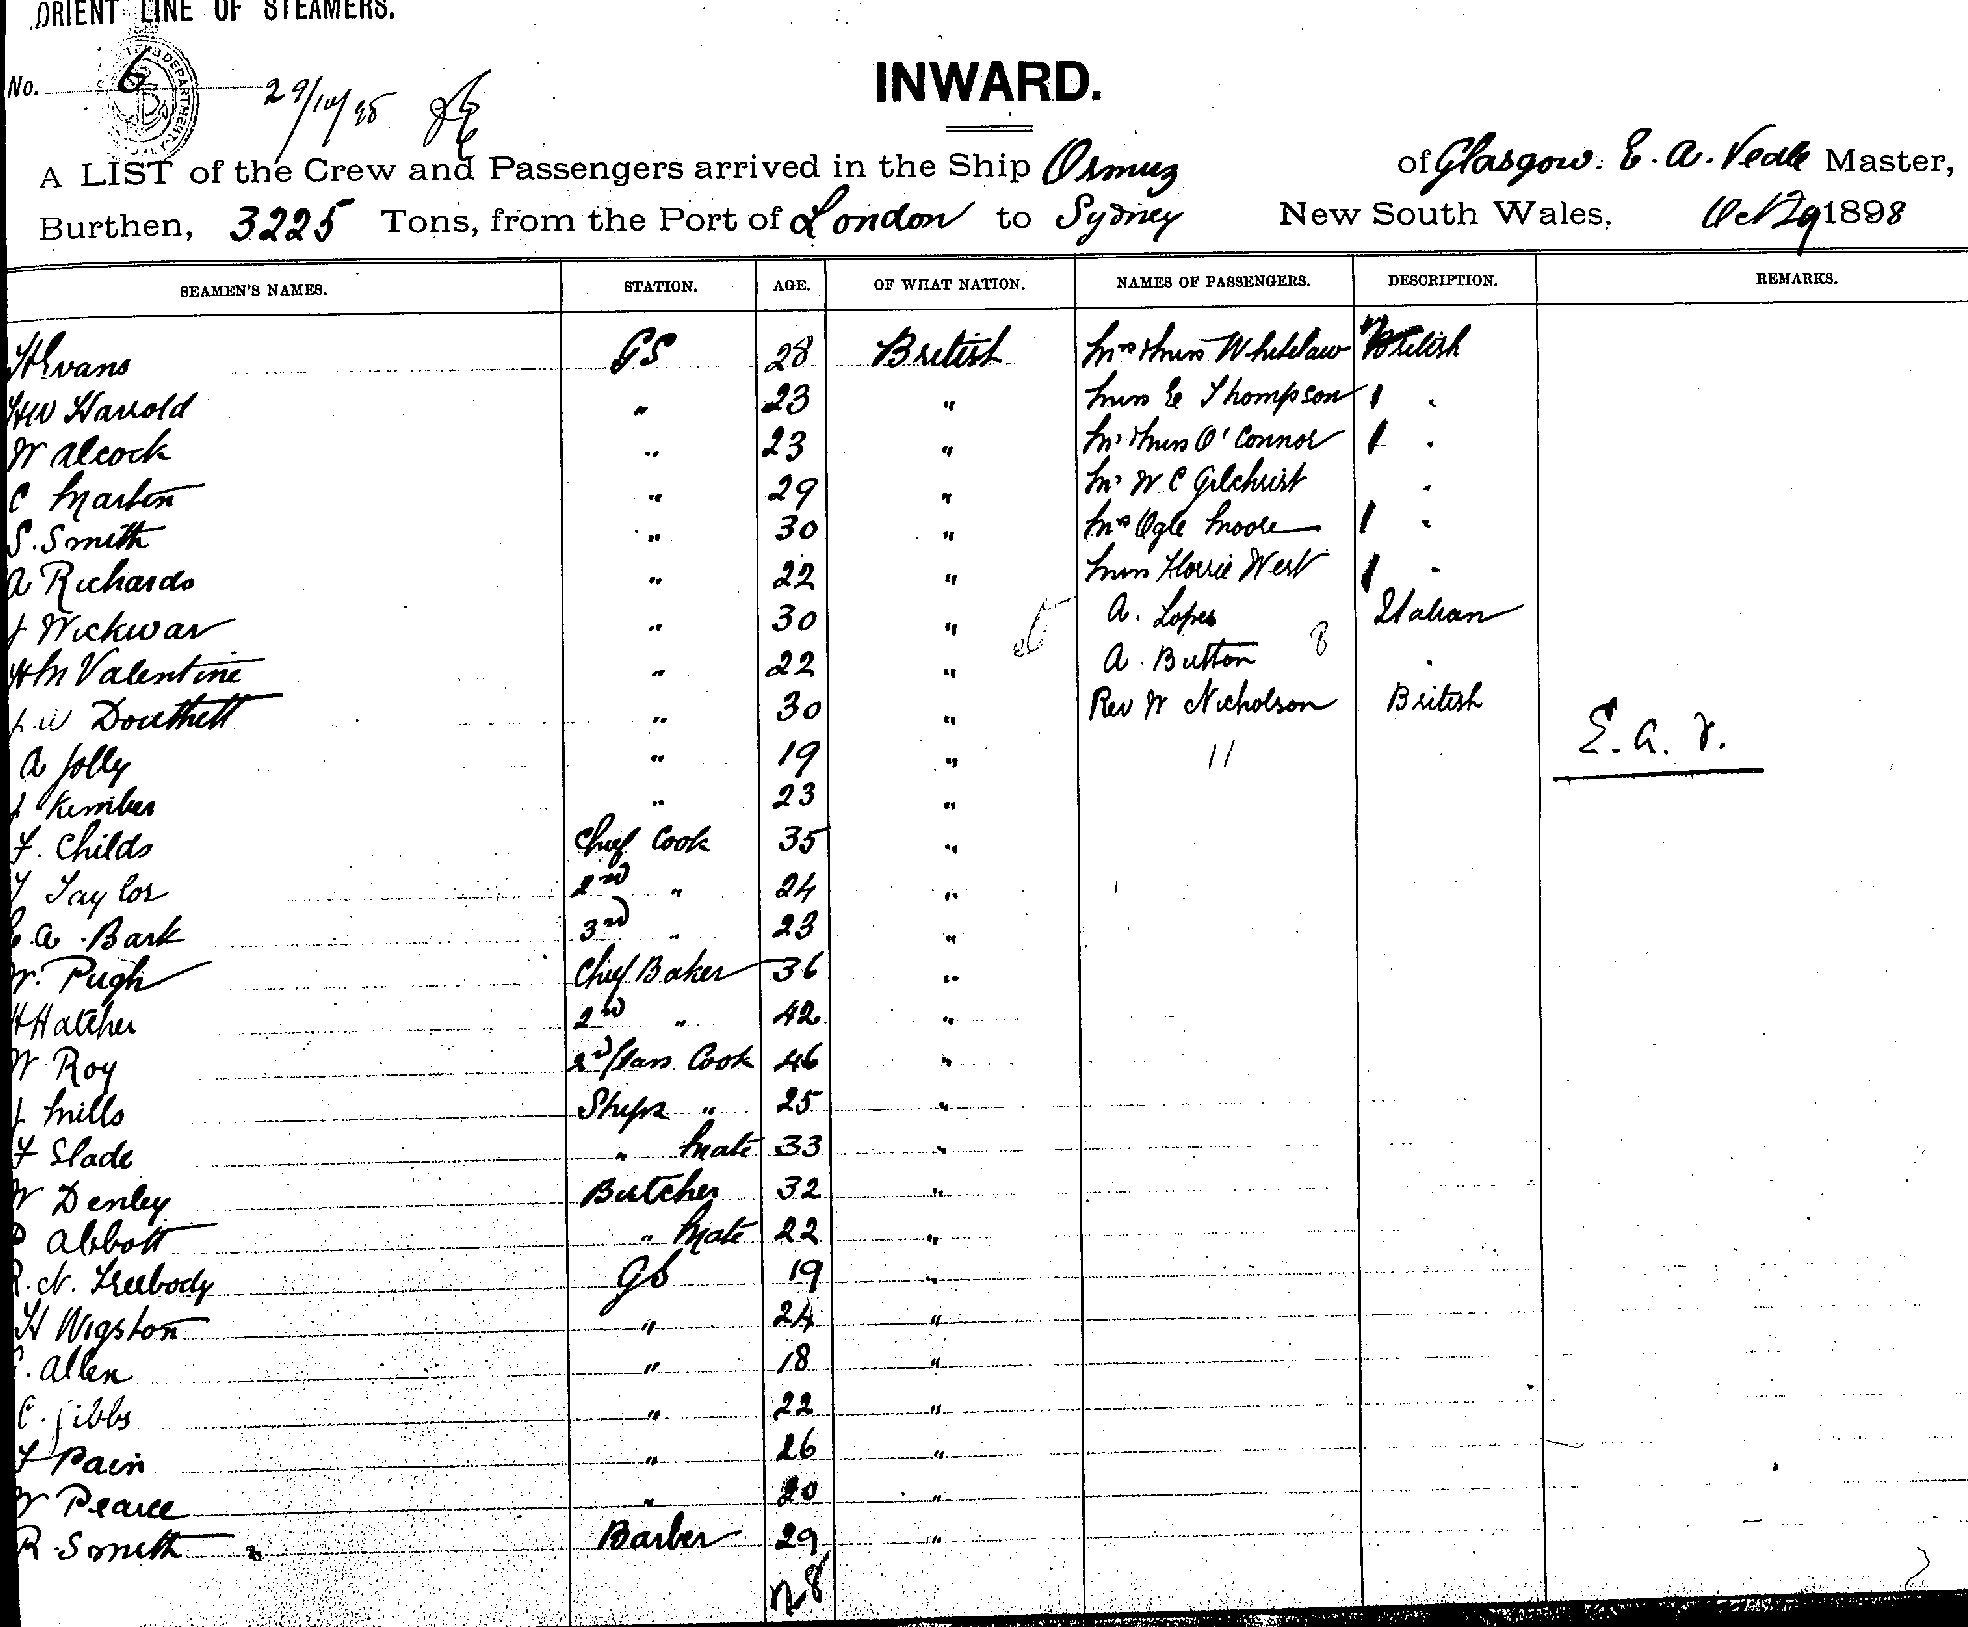 ORIENT LINE OF STEAMERS.
No. 6 29/10/98
INWARD.
A LIST of the Crew and Passengers arrived in the Ship Ormuz of Glasgow. E. A. Veale Master,
Burthen, 3225 Tons, from the Port of London to Sydney New South Wales, Oct 29 1898
SEAMEN'S NAMES. STATION. AGE. OF WHAT NATION. NAMES OF PASSENGERS. DESCRIPTION. REMARKS.
H Evans GS 28 British Mrs & Miss Whitelaw British
HW Harrold " 23 " Miss E Thompson "
W Alcock " 23 " Mr & Miss O'Connor "
C Martin " 29 " Mr W C Gilchrist "
S. Smith " 30 " Mrs Ogle Moore "
A Richards " 22 " Miss Florrie West "
J Wickwar " 30 " A. Lopes Italian
H M Valentine " 22 " A. Button 8 "
Douthett " 30 " Rev W Nicholson British
A Jolly " 19 " 11 E. A. V.
J Kember " 23 "
F. Childs Chief Cook 35 "
Taylor 2nd " 24 "
E. A. Bark 3rd " 23 "
W. Pugh Chief Baker 36 "
H Hatcher 2nd " 42 "
W Roy 2nd Class Cook 46 "
J Mills Ships " 25 "
F Slade " Mate 33 "
W Denley Butcher 32 "
P Abbott " Mate 22 "
R. N. Freebody GS 19 "
H Wigston " 24 "
Allen " 18 "
C. Gibbs " 22 "
F Pain " 26 "
W Pearce " 20 "
R Smith Barber 29 "
28